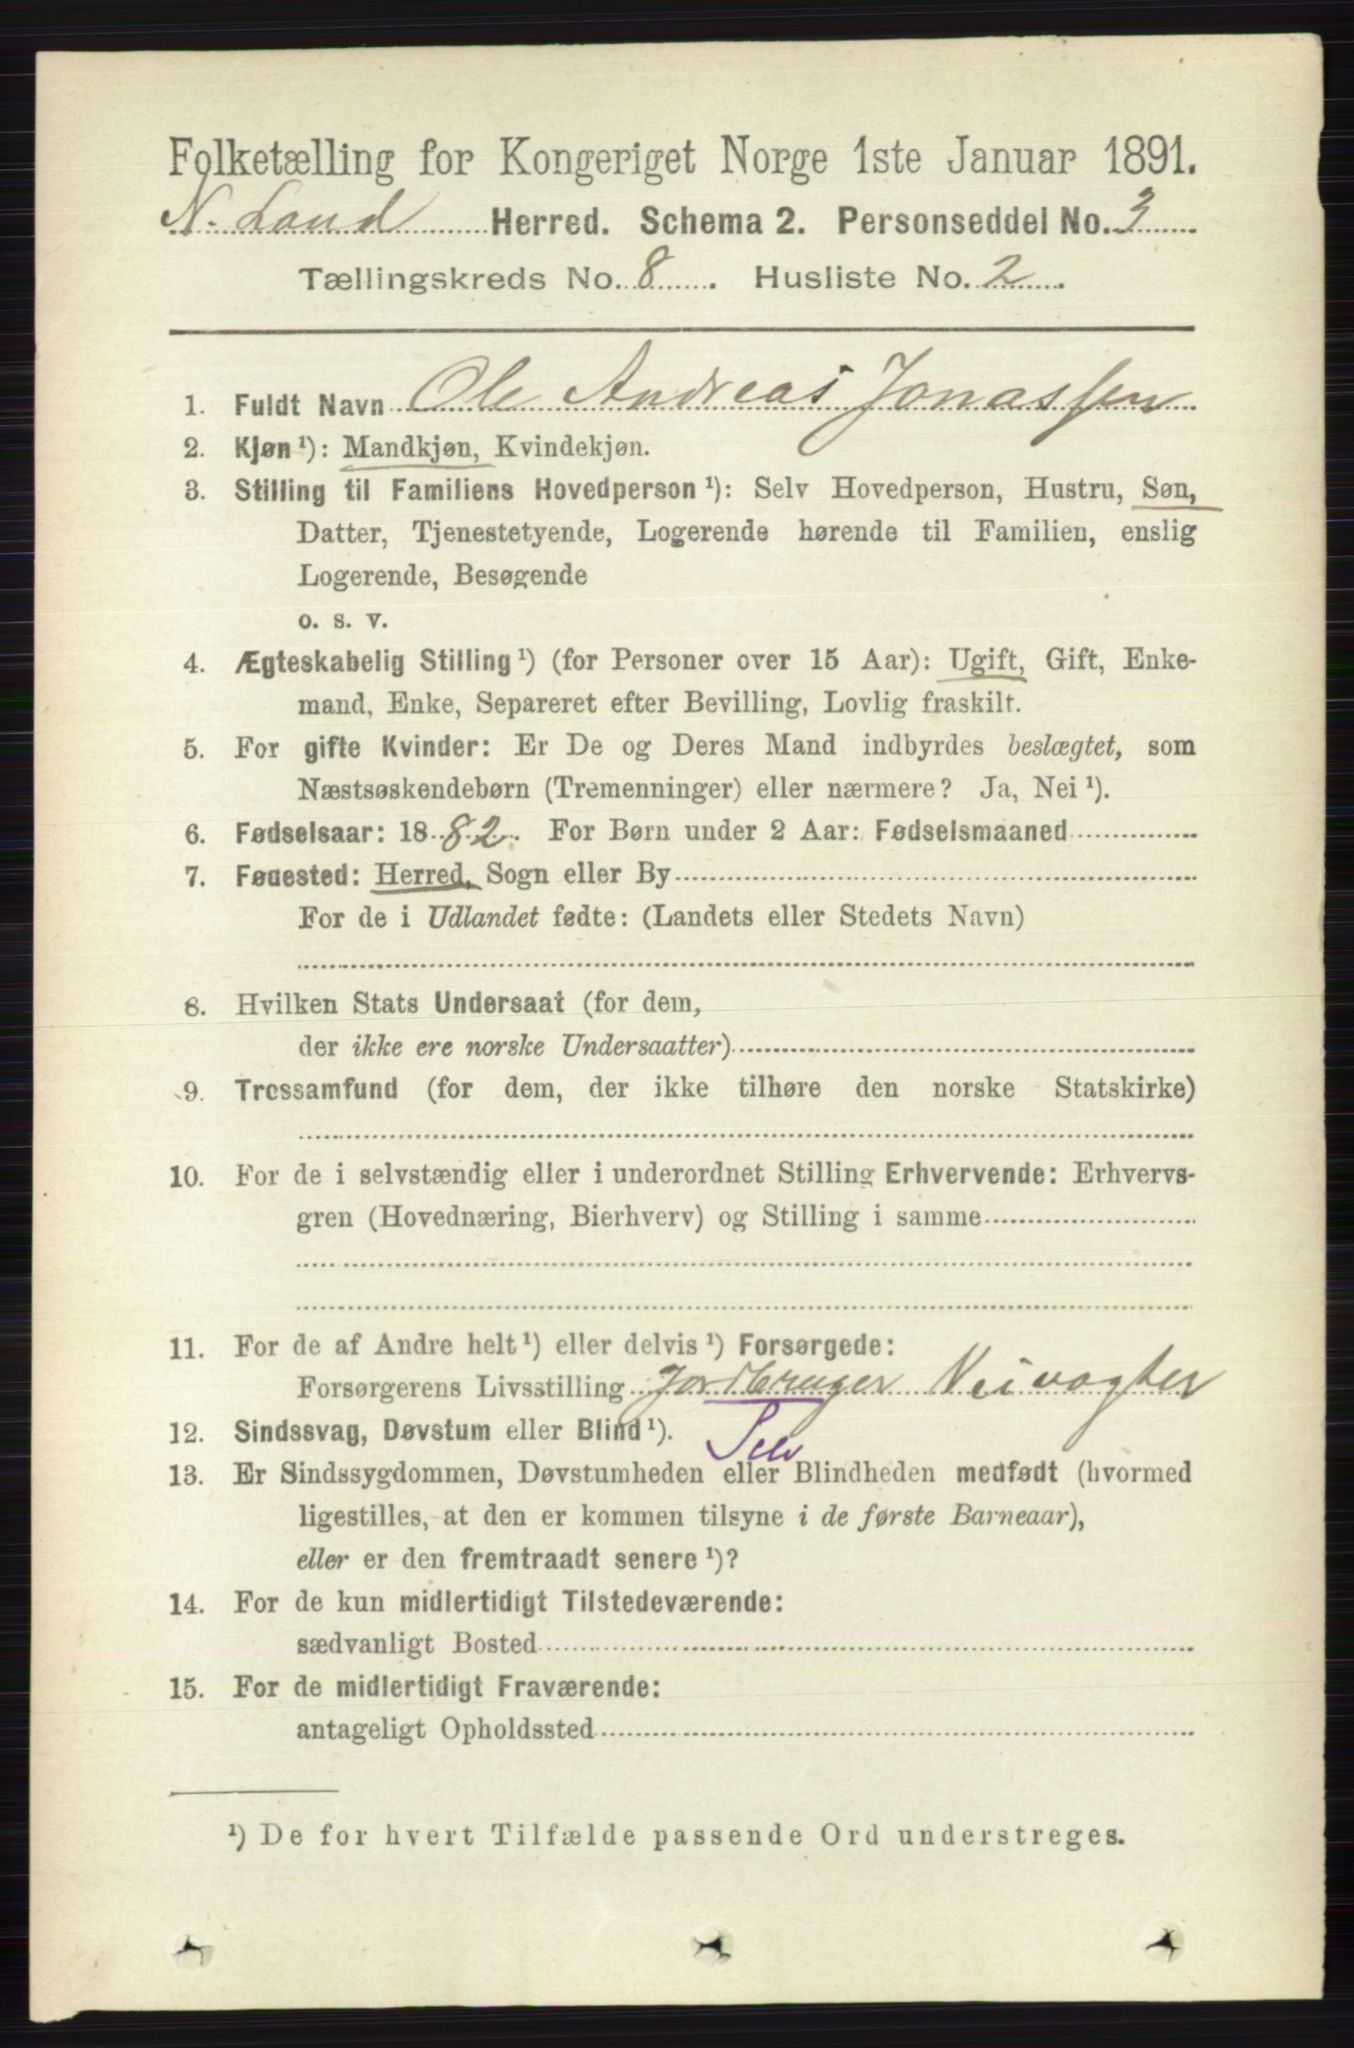 Folketælling for Kongeriget Norge 1ste Januar 1891.
N. Land Herred. Schema 2. Personseddel No. 3
Tællingskreds No. 8. Husliste No. 2.
1. Fuldt Navn Ole Andreas Jonassen
2. Kjøn¹): Mandkjøn, Kvindekjøn.
3. Stilling til Familiens Hovedperson¹): Selv Hovedperson, Hustru, Søn,
Datter, Tjenestetyende, Logerende hørende til Familien, enslig
Logerende, Besøgende
o. s. v.
4. Ægteskabelig Stilling¹) (for Personer over 15 Aar): Ugift, Gift, Enke-
mand, Enke, Separeret efter Bevilling, Lovlig fraskilt.
5. For gifte Kvinder: Er De og Deres Mand indbyrdes beslægtet, som
Næstsøskendebørn (Tremenninger) eller nærmere? Ja, Nei¹).
6. Fødselsaar: 1882. For Børn under 2 Aar: Fødselsmaaned
7. Fødested: Herred, Sogn eller By
For de i Udlandet fødte: (Landets eller Stedets Navn)
8. Hvilken Stats Undersaat (for dem,
der ikke ere norske Undersaatter)
9. Trossamfund (for dem, der ikke tilhøre den norske Statskirke)
10. For de i selvstændig eller i underordnet Stilling Erhvervende: Erhvervs-
gren (Hovednæring, Bierhverv) og Stilling i samme
11. For de af Andre helt¹) eller delvis¹) Forsørgede:
Forsørgerens Livsstilling Jordbruger Veivogter
12. Sindssvag, Døvstum eller Blind¹). Selv
13. Er Sindssygdommen, Døvstumheden eller Blindheden medfødt (hvormed
ligestilles, at den er kommen tilsyne i de første Barneaar),
eller er den fremtraadt senere¹)?
14. For de kun midlertidigt Tilstedeværende:
sædvanligt Bosted
15. For de midlertidigt Fraværende:
antageligt Opholdssted
¹) De for hvert Tilfælde passende Ord understreges.